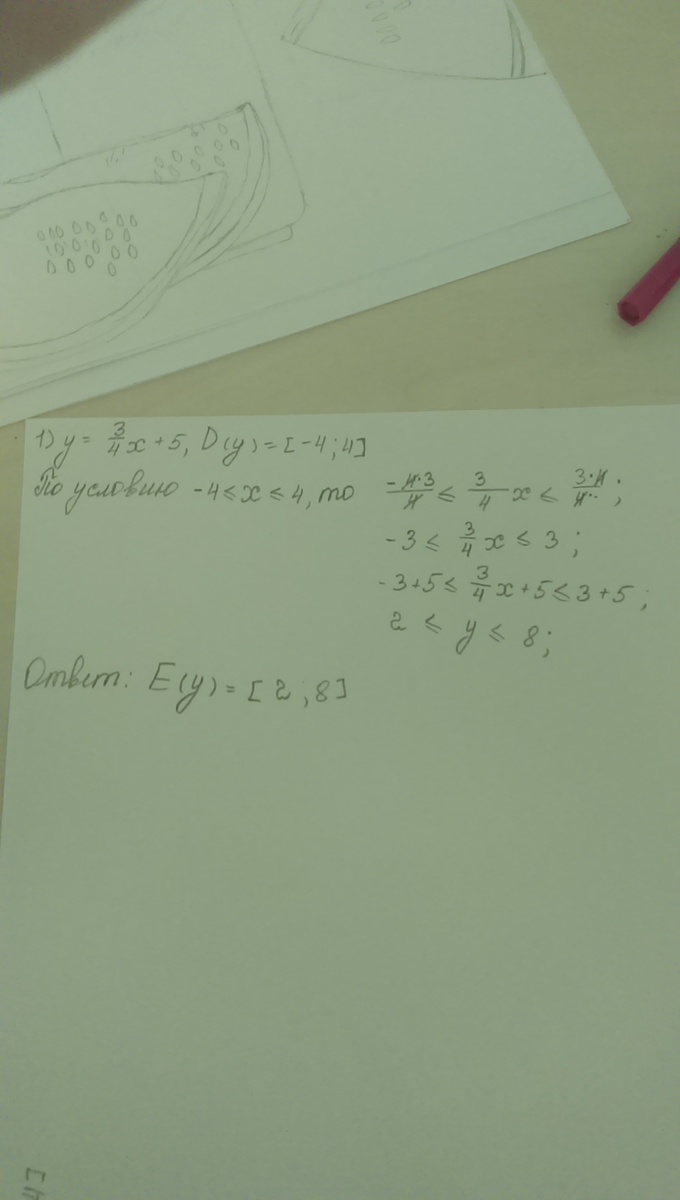 1) y = 3/4 x + 5, D(y) = [-4; 4]
По условию -4 ≤ x ≤ 4, то -4·3/4 ≤ 3/4 x ≤ 3·4/4;
-3 ≤ 3/4 x ≤ 3;
-3+5 ≤ 3/4 x + 5 ≤ 3 + 5;
2 ≤ y ≤ 8;
Ответ: E(y) = [2; 8]
4]